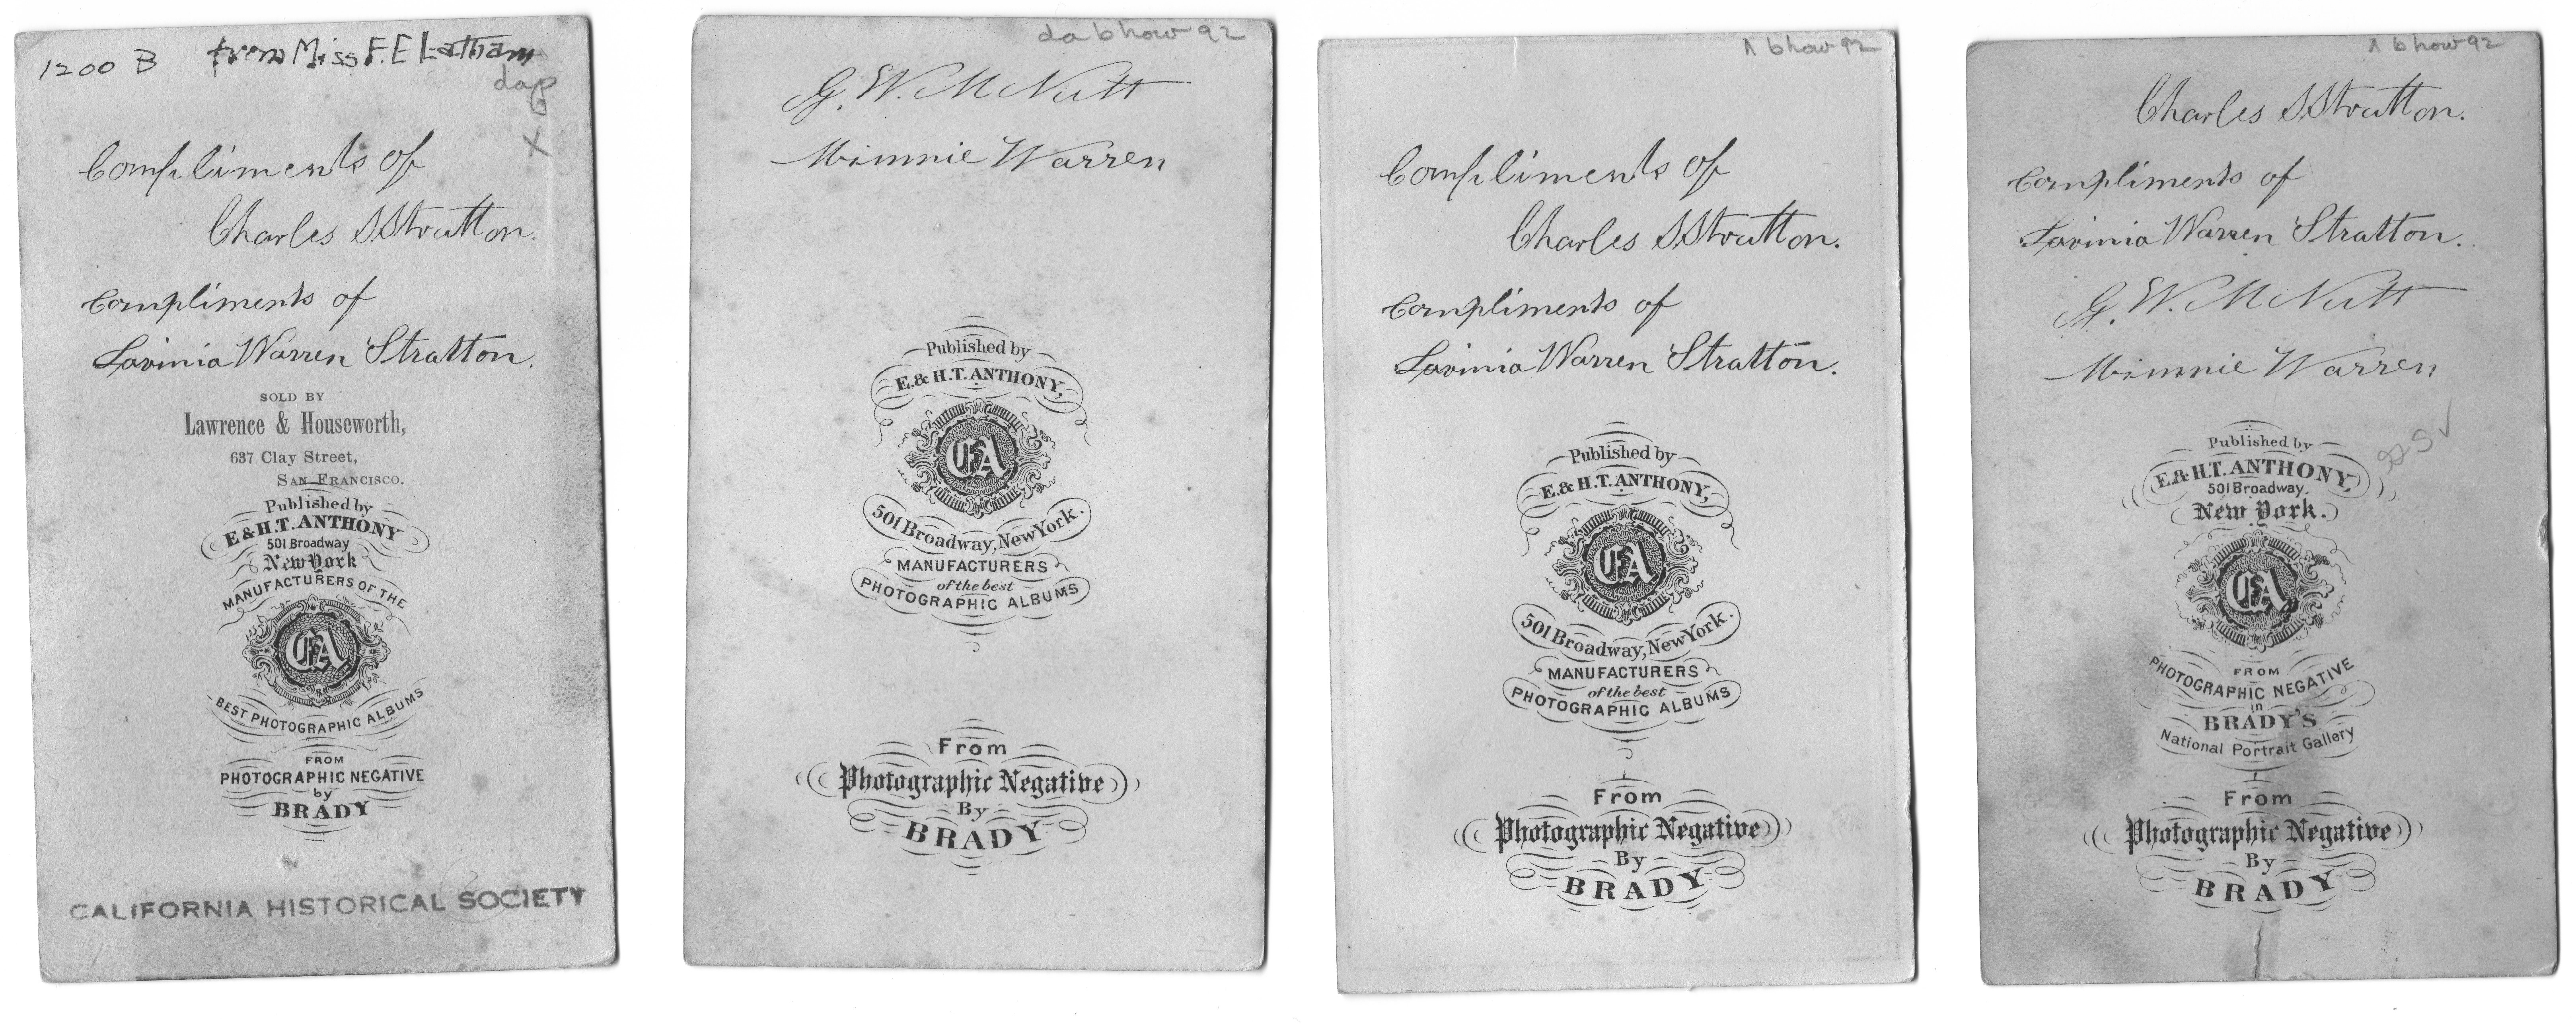 1200 B from Miss F. E Latham
dap
X
Compliments of
Charles S. Stratton.
Compliments of
Lavinia Warren Stratton.
SOLD BY
Lawrence & Houseworth,
637 Clay Street,
SAN FRANCISCO.
Published by
E & H.T. ANTHONY
501 Broadway
New York
MANUFACTURERS OF THE
EA
BEST PHOTOGRAPHIC ALBUMS
FROM
PHOTOGRAPHIC NEGATIVE
by
BRADY
CALIFORNIA HISTORICAL SOCIETY
da bhow 92
G. W. M Nutt
Minnie Warren
Published by
E. & H.T. ANTHONY,
EA
501 Broadway, New York.
MANUFACTURERS
of the best
PHOTOGRAPHIC ALBUMS
From
Photographic Negative
By
BRADY
bhow 92
Compliments of
Charles S. Stratton.
Compliments of
Lavinia Warren Stratton.
Published by
E. & H.T. ANTHONY,
EA
501 Broadway, New York.
MANUFACTURERS
of the best
PHOTOGRAPHIC ALBUMS
From
Photographic Negative
By
BRADY
bhow 92
Charles S. Stratton.
Compliments of
Lavinia Warren Stratton.
G. W. M Nutt
Minnie Warren
Published by
E & H.T. ANTHONY,
501 Broadway,
New York.
EA
FROM
PHOTOGRAPHIC NEGATIVE
in
BRADY'S
National Portrait Gallery
From
Photographic Negative
By
BRADY